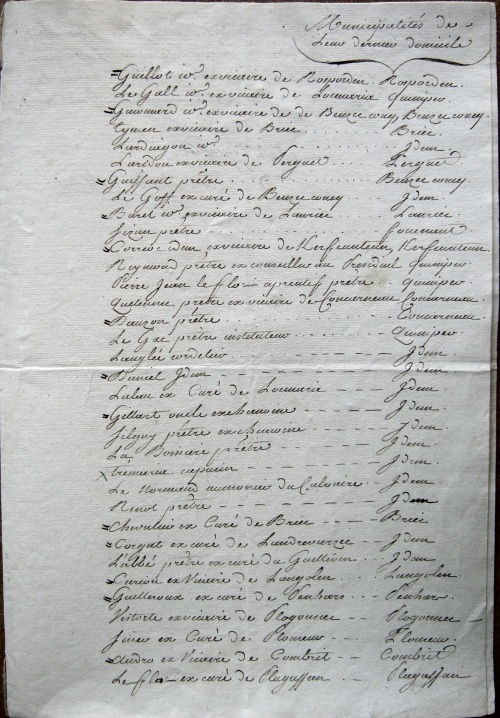 Municipalités de
Leur dernier domicile
Guillot id. exvicaire de Rosporden. Rosporden.
Le Gall id. exvicaire de Locmaria Quimper.
Guiomard id. exvicaire de de Beuzec conq, Beuzec conq.
Cymen exvicaire de Briec . . . Briec.
id. . . . Jdem.
exvicaire de Fergat . . . Fergat
Goiffant prêtre . . . Beuzec conq
Le Goff ex curé de Beuzec conq . . . Jdem
Baret id. exvicaire de Lanriec . . . Lanriec
prêtre . . .
idem exvicaire de Kerfeunteun, Kerfeunteun.
Reymond prêtre ex conseiller au Presdial Quimper
Pierre Jean le flo - aprentif prêtre . quimper
prêtre ex vicaire de Concarneau Concarneau.
Dauzon prêtre . . . Concarneau.
Le Gac prêtre instituteur . . . Quimper
Langlée cordelier - - - Jdem.
Daniel Jdem - - - Jdem.
ex Curé de Locmaria - - - Jdem
Gellart oncle exchanoine - - - Jdem
Silguy prêtre exchanoine - - - Jdem
La prêtre - - - Jdem.
tremaria capucin - - - Jdem.
Le Normand aumonier du Calvaire . . Jdem.
prêtre - - - Jdem
Chevalier ex Curé de Briec - - - Briec
Corgat ex curé de Landrevarzec - - Jdem
L'abbé prêtre ex curé du Guillien . . . Jdem
ex Vicaire de Langolen . . . Langolen
Guilleroux ex curé de Penhars . . . Penhars
Vistorte exvicaire de Plogonnec - - Plogonnec
ex Curé de Plomeur - - - Plomeur.
Andro ex Vicaire de Combrit - - Combrit
Le flo - ex curé de Plugaffan . . . Plugaffan